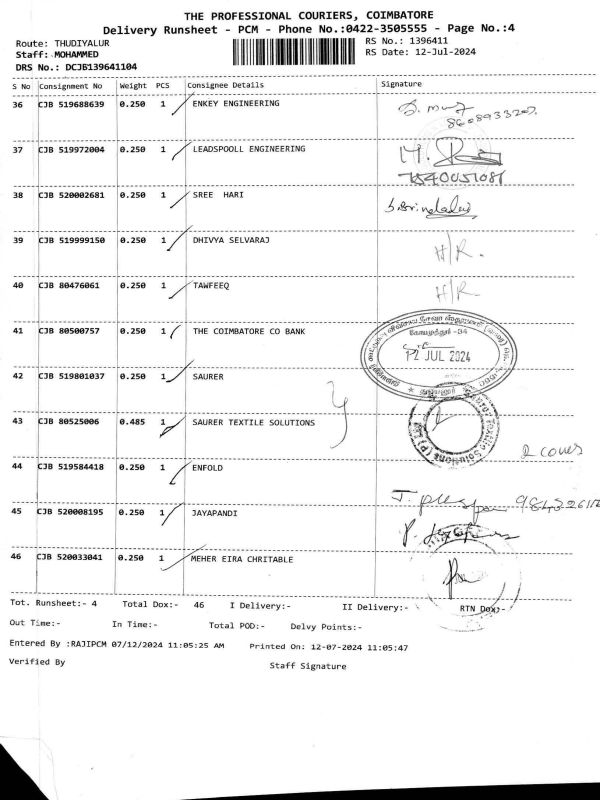 THE PROFESSIONAL COURIERS, COIMBATORE
Delivery Runsheet - PCM - Phone No.:0422-3505555 - Page No.:4
Route: THUDIYALUR
RS No.: 1396411
Staff: MOHAMMED
RS Date: 12-Jul-2024
DRS No.: DCJB139641104
S No Consignment No Weight PCS Consignee Details Signature
36 CJB 519688639 0.250 1 ENKEY ENGINEERING
37 CJB 519972004 0.250 1 LEADSPOOLL ENGINEERING
7540051081
38 CJB 520002681 0.250 1 SREE HARI
39 CJB 519999150 0.250 1 DHIVYA SELVARAJ H/R.
40 CJB 80476061 0.250 1 TAWFEEQ H/R.
கோயமுத்தூர் -34
41 CJB 80500757 0.250 1 THE COIMBATORE CO BANK
12 JUL 2024
42 CJB 519801037 0.250 1 SAURER
43 CJB 80525006 0.485 1 SAURER TEXTILE SOLUTIONS
2 cover
44 CJB 519584418 0.250 1 ENFOLD
45 CJB 520008195 0.250 1 JAYAPANDI
46 CJB 520033041 0.250 1 MEHER EIRA CHRITABLE
Tot. Runsheet:- 4 Total Dox:- 46 I Delivery:- II Delivery:- RTN Dox:-
Out Time:- In Time:- Total POD:- Delvy Points:-
Entered By :RAJIPCM 07/12/2024 11:05:25 AM Printed On: 12-07-2024 11:05:47
Verified By Staff Signature